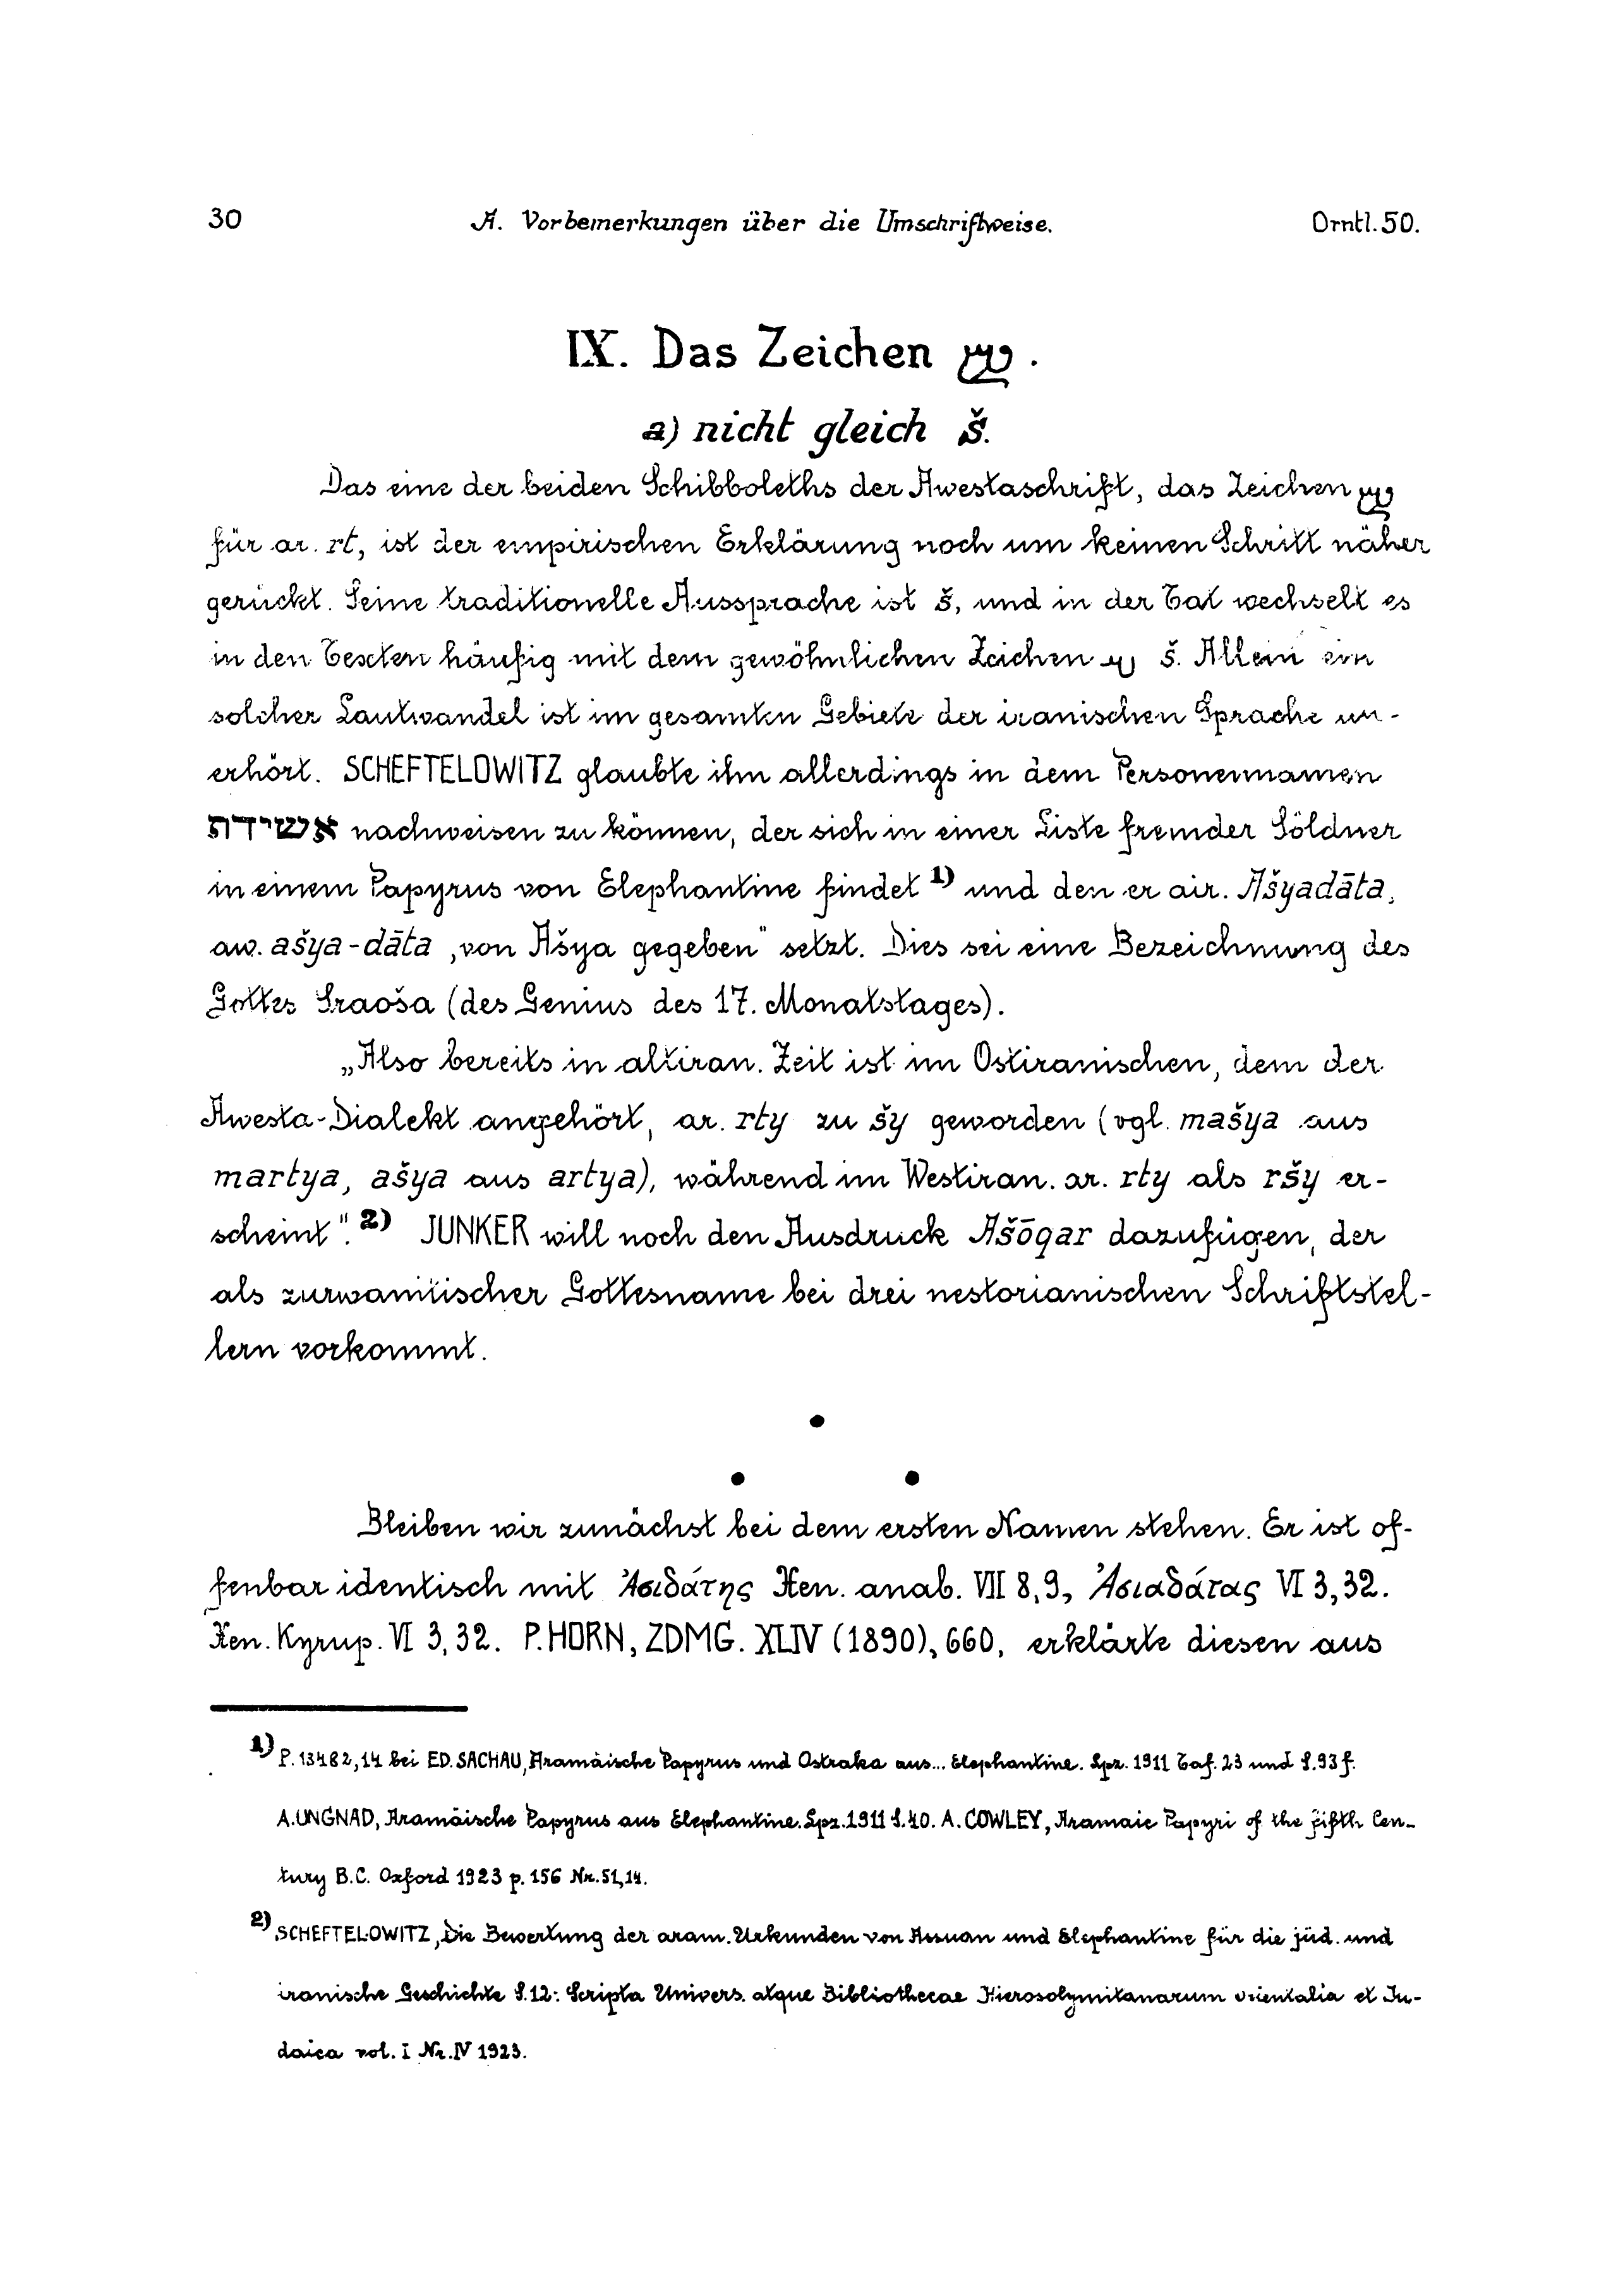 30 A. Vorbemerkungen über die Umschriftweise. Orntl. 50.
IX. Das Zeichen 𐬴.
a) nicht gleich š.
Das eine der beiden Schibboleths der Awestaschrift, das Zeichen 𐬴
für ar. rt, ist der empirischen Erklärung noch um keinen Schritt näher
gerückt. Seine traditionelle Aussprache ist š, und in der Tat wechselt es
in den Texten häufig mit dem gewöhnlichen Zeichen 𐬱 š. Allein ein
solcher Lautwandel ist im gesamten Gebiete der iranischen Sprache un-
erhört. SCHEFTELOWITZ glaubte ihn allerdings in dem Personennamen
אשידת nachweisen zu können, der sich in einer Liste fremder Söldner
in einem Papyrus von Elephantine findet 1) und den er air. Ašyadāta,
aw. ašya-dāta „von Ašya gegeben" setzt. Dies sei eine Bezeichnung des
Gottes Sraoša (des Genius des 17. Monatstages).
„Also bereits in altiran. Zeit ist im Ostiranischen, dem der
Awesta-Dialekt angehört, ar. rty zu šy geworden (vgl. mašya aus
martya, ašya aus artya), während im Westiran. ar. rty als ršy er-
scheint". 2) JUNKER will noch den Ausdruck Ašōqar dazufügen, der
als zurwanitischer Gottesname bei drei nestorianischen Schriftstel-
lern vorkommt.
Bleiben wir zunächst bei dem ersten Namen stehen. Er ist of-
fenbar identisch mit Ἀσιδάτης Xen. anab. VII 8,9, Ἀσιαδάτας VI 3,32.
Xen. Kyrup. VI 3,32. P. HORN, ZDMG. XLIV (1890), 660, erklärte diesen aus
1) P. 13482,14 bei ED. SACHAU, Aramäische Papyrus und Ostraka aus... Elephantine. Lpz. 1911 Taf. 23 und S. 93 f.
A. UNGNAD, Aramäische Papyrus aus Elephantine. Lpz. 1911 S. 40. A. COWLEY, Aramaic Papyri of the fifth Cen-
tury B.C. Oxford 1923 p. 156 Nr. 51,14.
2) SCHEFTELOWITZ, Die Bewertung der aram. Urkunden von Assuan und Elephantine für die jüd. und
iranische Geschichte S. 12: Scripta Univers. atque Bibliothecae Hierosolymitanarum orientalia et Ju-
daica vol. I Nr. IV 1923.